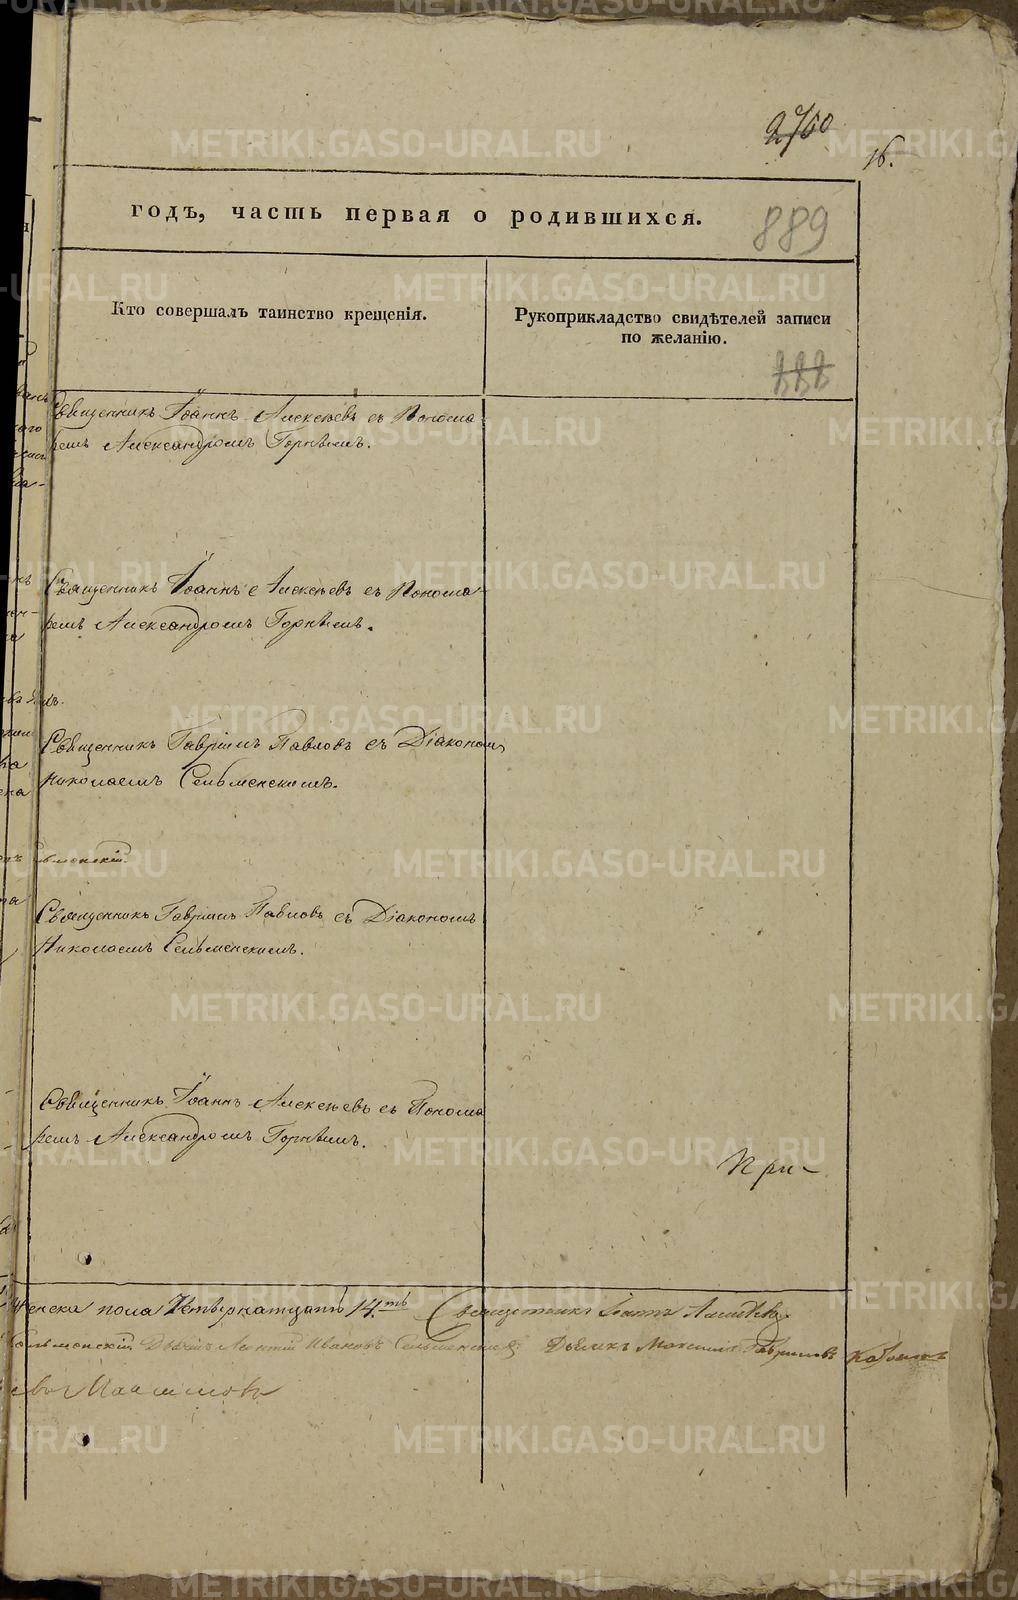 2760
16.
годъ, часть первая о родившихся.
889
Кто совершалъ таинство крещенія.
Рукоприкладство свидѣтелей записи
по желанію.
Священникъ Іоаннъ Алексѣевъ съ Понома
ремъ Александромъ Горнымъ.
Священникъ Іоаннъ Алексѣевъ съ Понома
ремъ Александромъ Горнымъ.
Священникъ Гавріилъ Павловъ съ Діакономъ
Николаемъ Сельменскимъ.
Священникъ Гавріилъ Павловъ съ Діакономъ
Николаемъ Сельменскимъ.
Священникъ Іоаннъ Алексѣевъ съ Понома
ремъ Александромъ Горнымъ.
При-
женска пола Четырнатцать 14.ть Священникъ Іоаннъ
Иванов Сельменскій Дьячекъ Максимъ Гавриловъ
METRIKI.GASO-URAL.RU